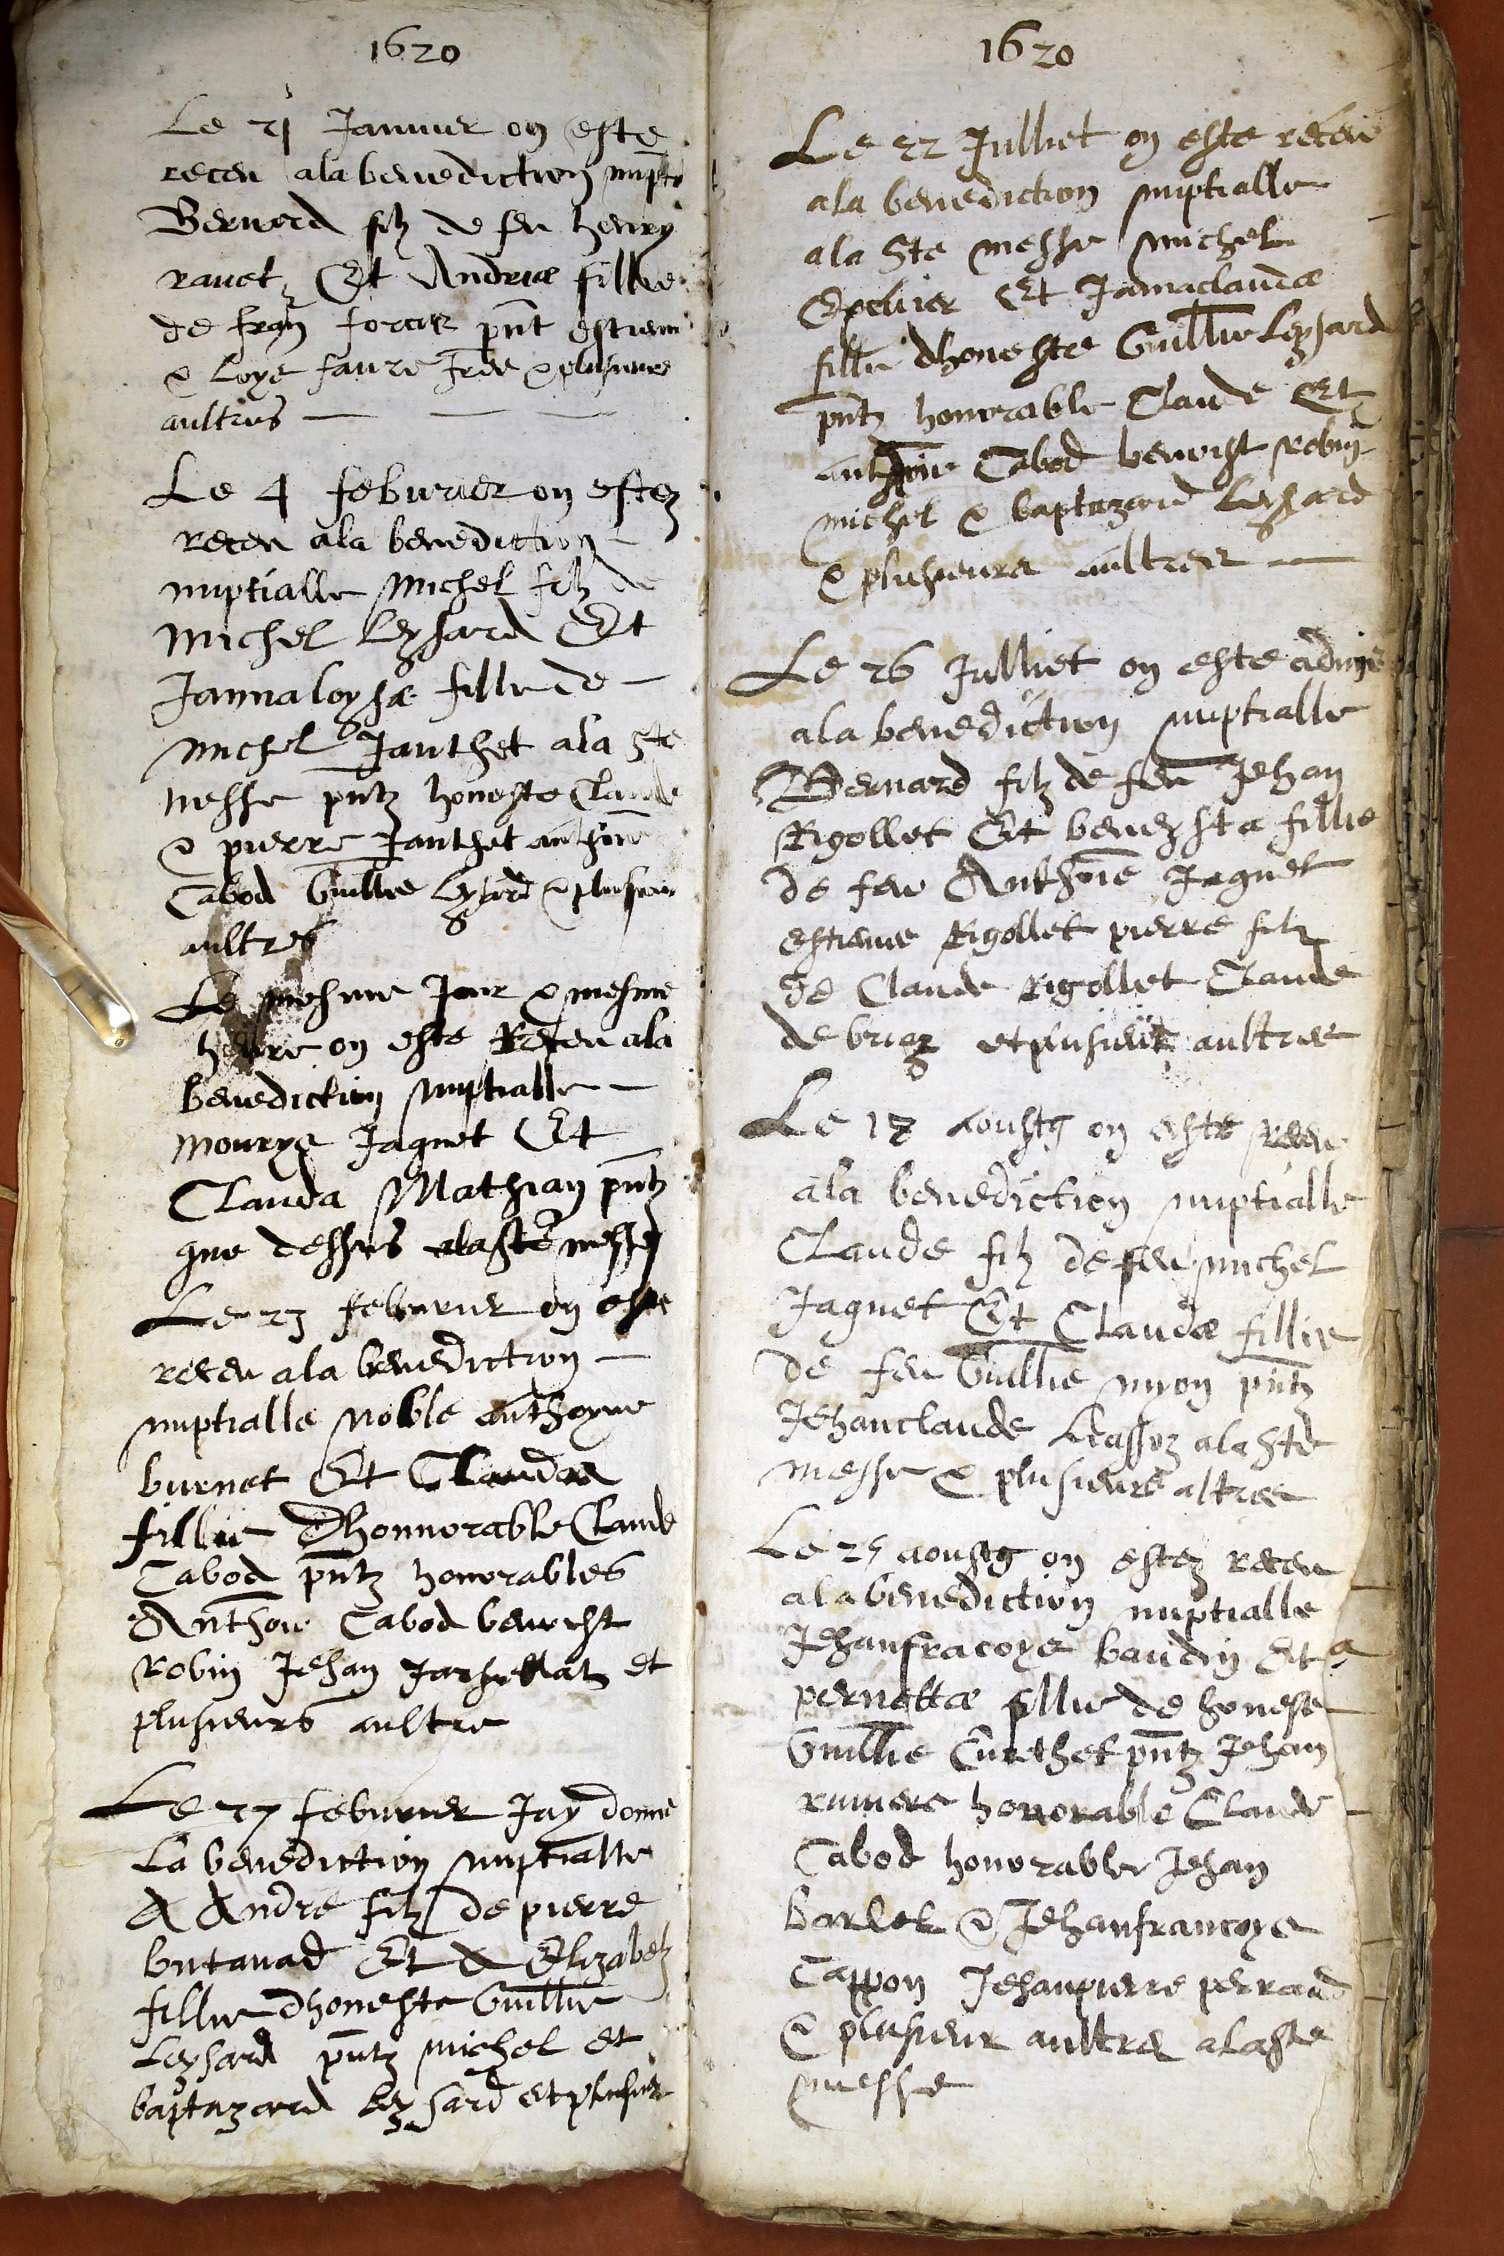 1620
Le 21 Januier on este
receu ala benediction nupt
Bernard filz de feu henry
rauet Et Andriæ fillie
de fran forier pnt estienne
& loys faure & plusieurs
aultres
Le 4 feburier on estez
receu ala benediction
nuptialle Michel filz de
Michel Leysard Et
Jannaloysæ fillie de
michel Janthet ala Ste
messe pntz honeste Claude
& pierre Janthet anthoie
Cabod Guillie Leysard & plusieurs
aultres
Le mesme Jour & mesme
heure on este Receu ala
benediction nuptialle
mourys Jaquet Et
Clauda Mathian pntz
que dessus ala ste messe
Le 23 feburier on este
receu ala benediction
nuptialle noble anthoyne
burnet Et Claudæ
fillie Dhonnorable Claude
Cabod pntz honorables
Anthoie Cabod benoist
Robin Jehan et
plusieurs aultre
Le 27 feburier Jay donne
La benediction nuptialle
A Andre filz de pierre
butauad Et A Elizabetz
fillie dhoneste Guillie
Leysard pntz michel et
baptazard Leysard et plusieurs
1620
Le 22 Julliet on este receu
ala benediction nuptialle
ala Ste messe michel
Excluier Et Jannaclaudæ
fillie dhoneste Guillie Leysard
pntz honorable Claude Et
anthoine Cabod benoist Robin
michel & baptazard Leysard
& plusieurs aultres
Le 26 Julliet on este admis
ala benediction nuptialle
Bernard filz de feu Jehan
Rigollet Et beneysta fillie
de feu Anthoie Jaquet
estienne Rigollet pierre filz
de Claude Rigollet Claude
de briez et plusieurs aultres
Le 18 aoustz on este receu
ala benediction nuptialle
Claude filz de feu michel
Jaquet Et Claudæ fillie
de feu Guillie myon pntz
Jehanclaude ala ste
messe & plusieurs altres
Le 25 aoustz on estez receu
ala benediction nuptialle
Jehanfracoys baudin Et a
pernettæ fillie de honeste
Guillie Curthet pntz Jehan
rumere honorable Claude
Cabod honorable Jehan
barlet & Jehanfrancoys
Cappon Jehanpierre perraud
& plusieur aultres ala ste
messe